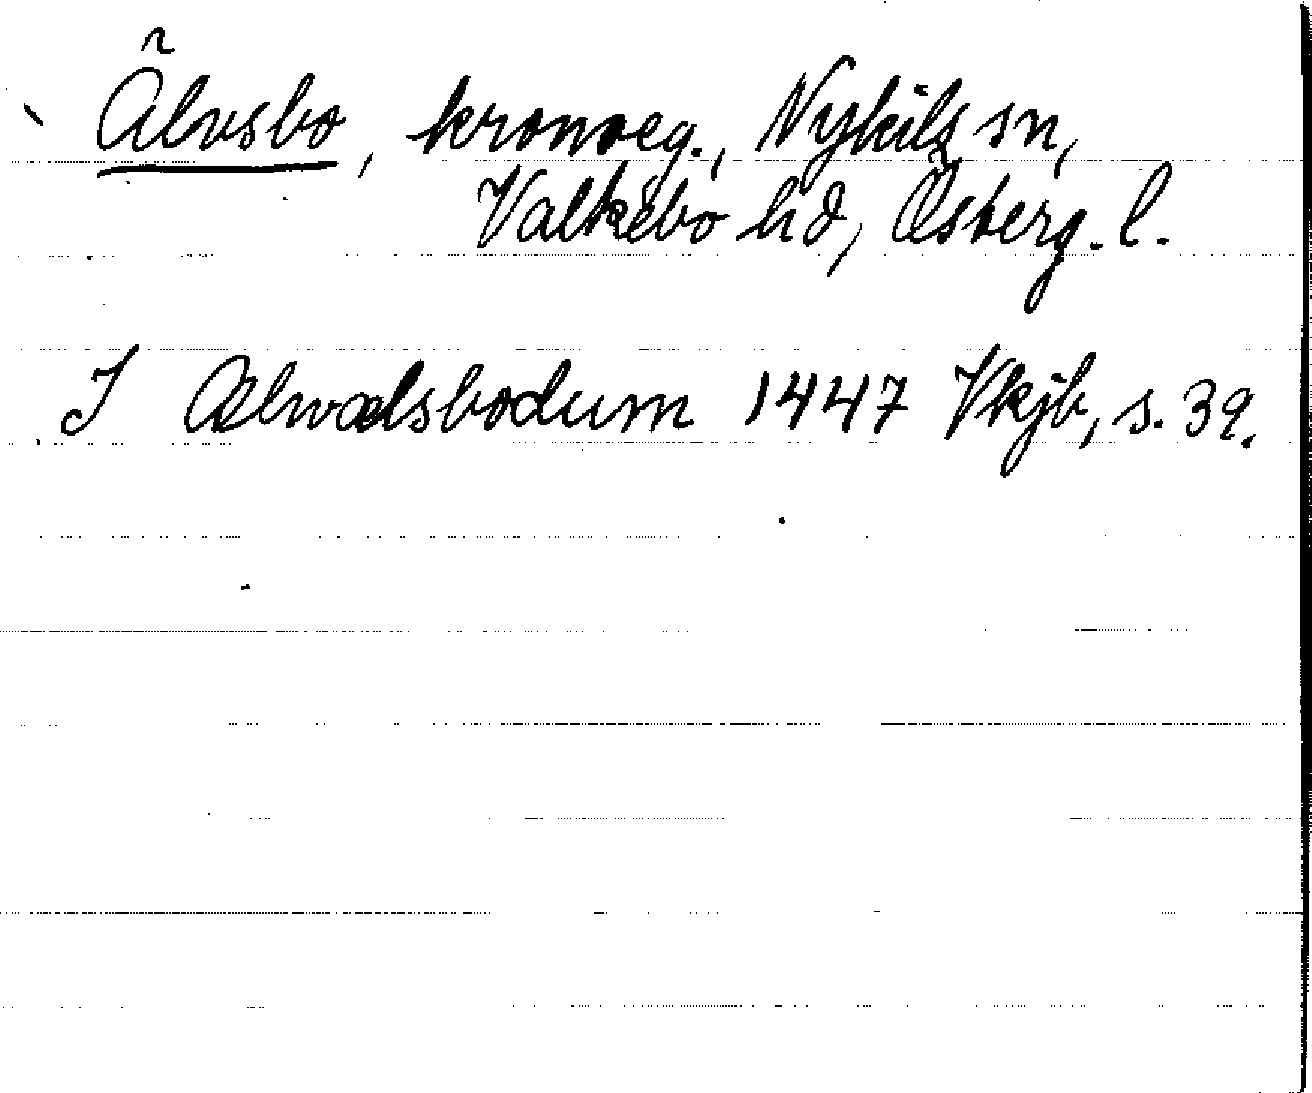 Älvsbo, kronoeg., Nykils sn,
Valkebo hd, Österg. l.
I Ælwælsbodum 1447 Vkjb, s. 39.